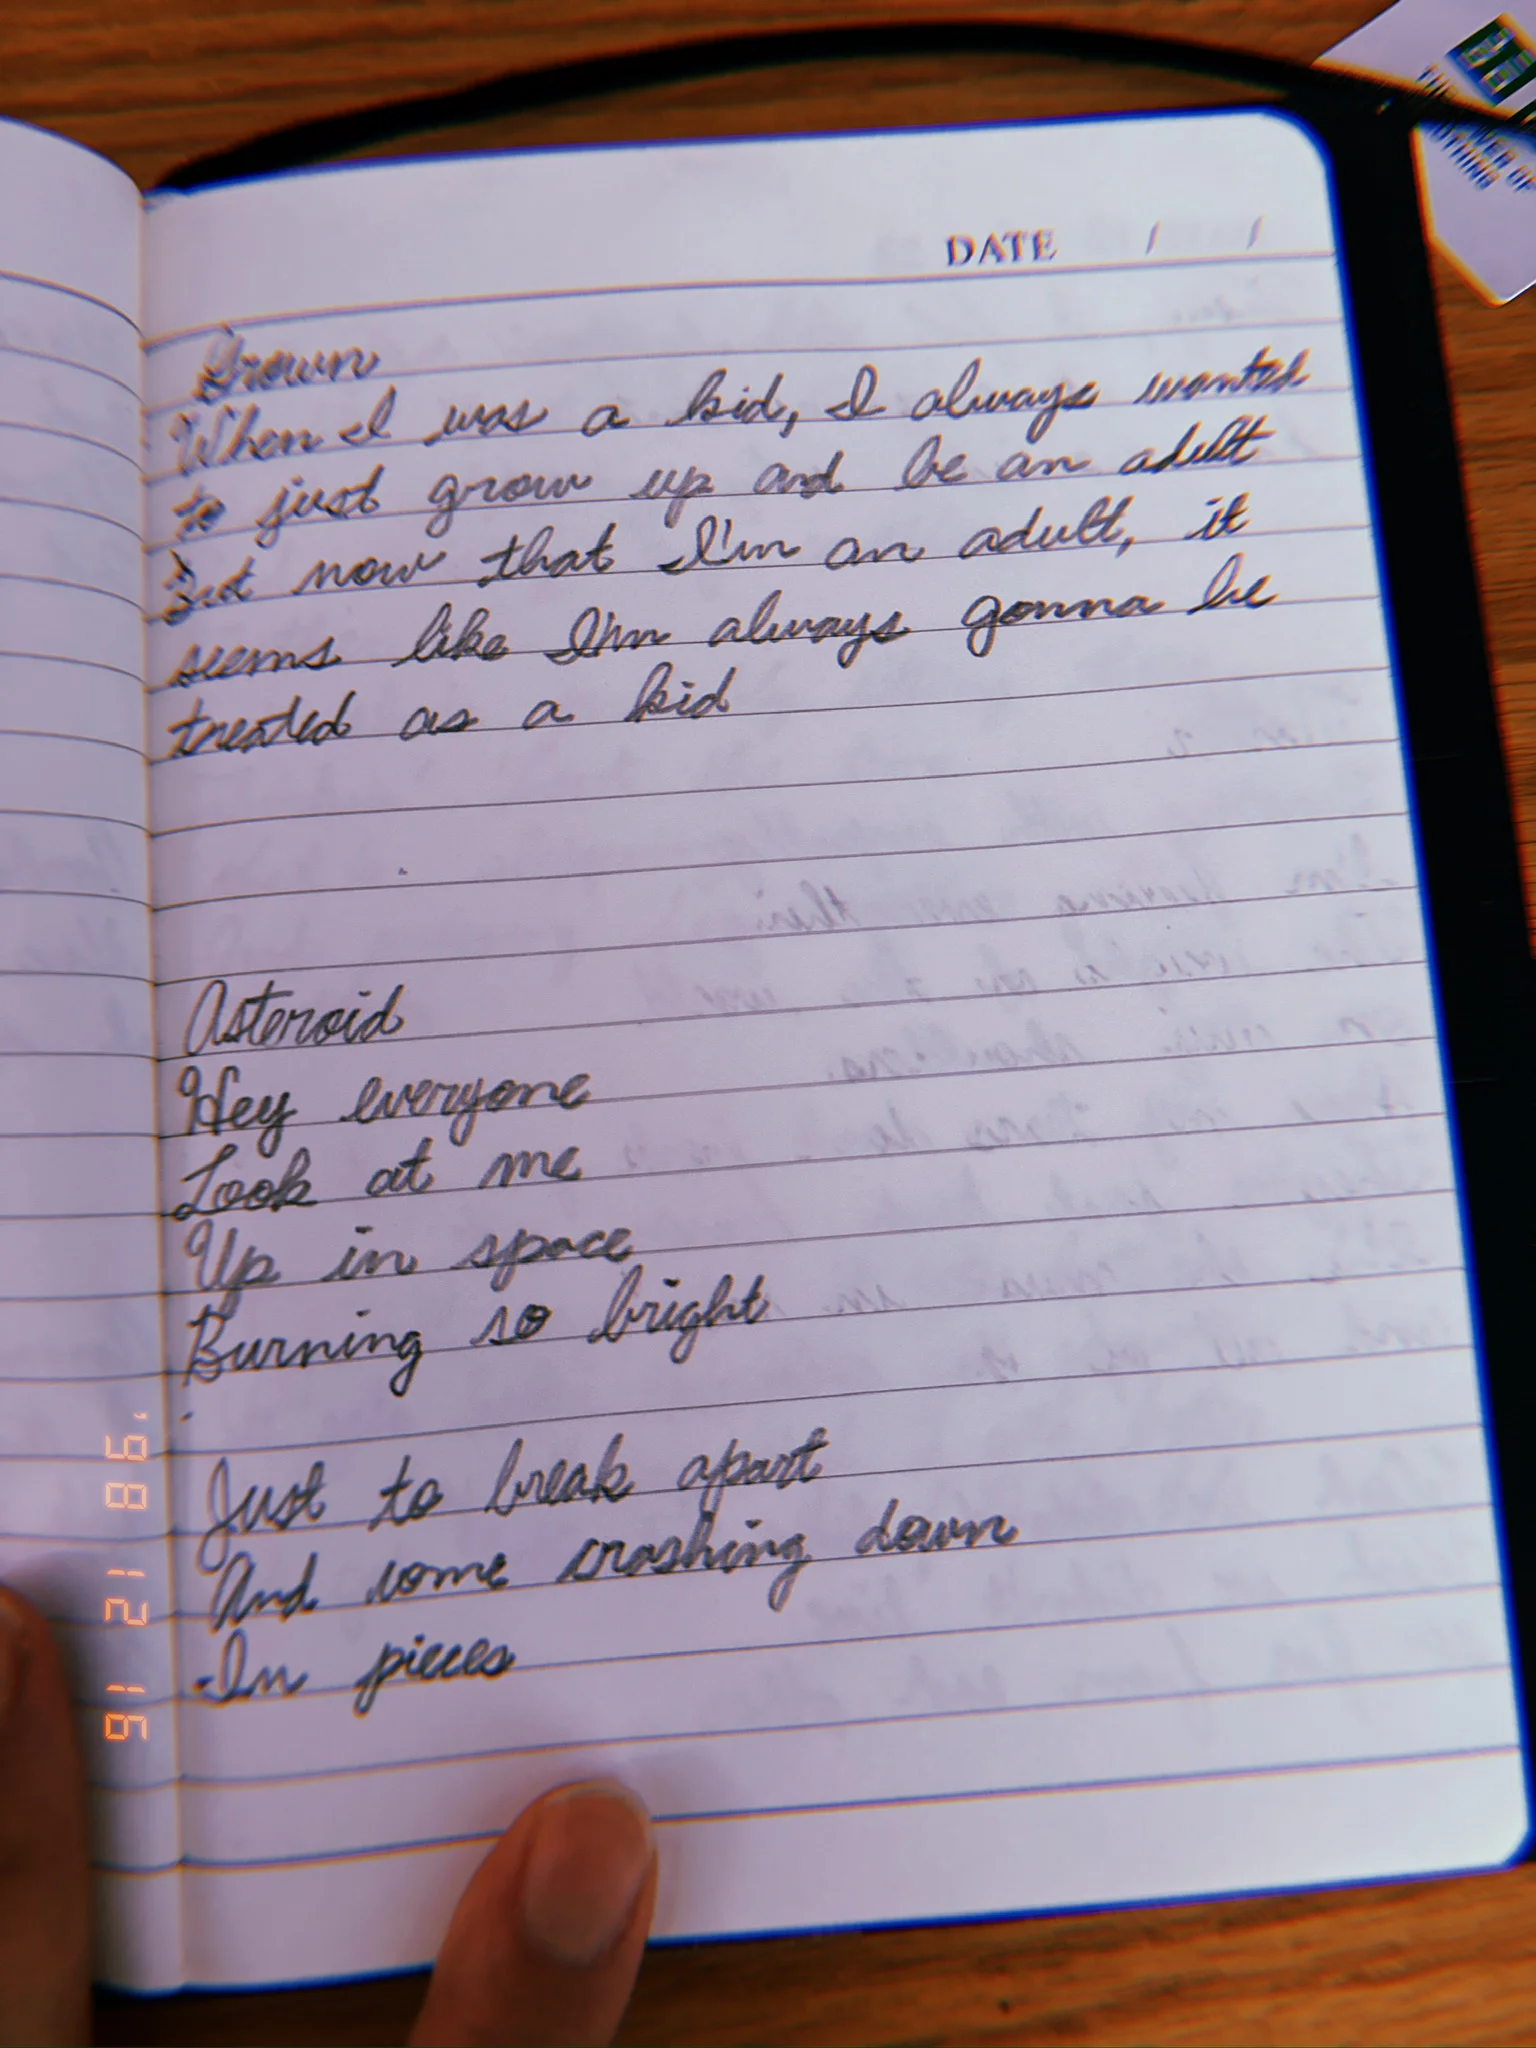 DATE / /
Grown
When I was a kid, I always wanted
to just grow up and be an adult
But now that I'm an adult, it
seems like I'm always gonna be
treated as a kid
Asteroid
Hey everyone
Look at me
Up in space
Burning so bright
Just to break apart
And come crashing down
In pieces
91 21 86 '